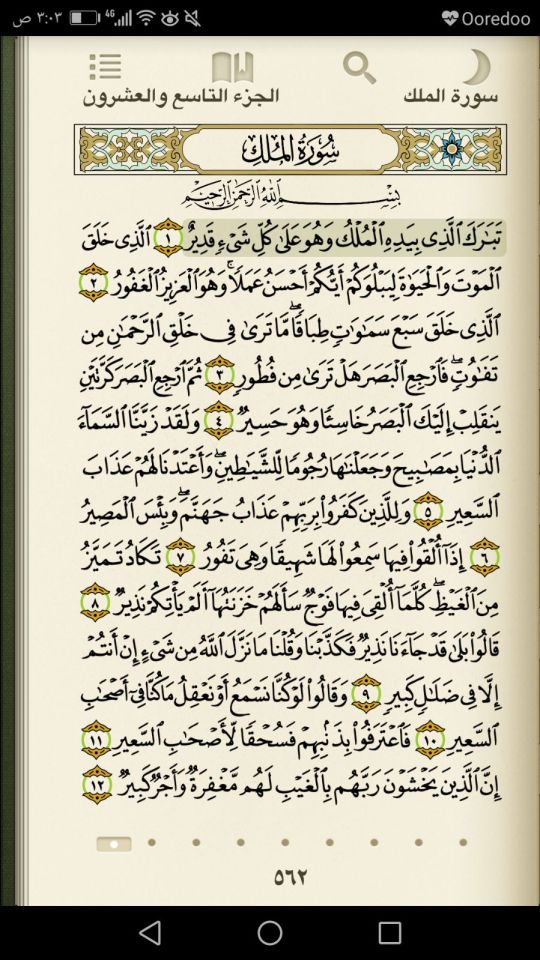 ٣:٠٣ ص 4G Ooredoo
سورة الملك الجزء التاسع والعشرون
سُورَةُ المُلْكِ
بِسْمِ ٱللَّهِ ٱلرَّحْمَٰنِ ٱلرَّحِيمِ
تَبَٰرَكَ ٱلَّذِى بِيَدِهِ ٱلْمُلْكُ وَهُوَ عَلَىٰ كُلِّ شَىْءٍ قَدِيرٌ ١ ٱلَّذِى خَلَقَ
ٱلْمَوْتَ وَٱلْحَيَوٰةَ لِيَبْلُوَكُمْ أَيُّكُمْ أَحْسَنُ عَمَلًا ۚ وَهُوَ ٱلْعَزِيزُ ٱلْغَفُورُ ٢
ٱلَّذِى خَلَقَ سَبْعَ سَمَٰوَٰتٍ طِبَاقًا ۖ مَّا تَرَىٰ فِى خَلْقِ ٱلرَّحْمَٰنِ مِن
تَفَٰوُتٍ ۖ فَٱرْجِعِ ٱلْبَصَرَ هَلْ تَرَىٰ مِن فُطُورٍ ٣ ثُمَّ ٱرْجِعِ ٱلْبَصَرَ كَرَّتَيْنِ
يَنقَلِبْ إِلَيْكَ ٱلْبَصَرُ خَاسِئًا وَهُوَ حَسِيرٌ ٤ وَلَقَدْ زَيَّنَّا ٱلسَّمَآءَ
ٱلدُّنْيَا بِمَصَٰبِيحَ وَجَعَلْنَٰهَا رُجُومًا لِّلشَّيَٰطِينِ ۖ وَأَعْتَدْنَا لَهُمْ عَذَابَ
ٱلسَّعِيرِ ٥ وَلِلَّذِينَ كَفَرُوا۟ بِرَبِّهِمْ عَذَابُ جَهَنَّمَ ۖ وَبِئْسَ ٱلْمَصِيرُ
٦ إِذَآ أُلْقُوا۟ فِيهَا سَمِعُوا۟ لَهَا شَهِيقًا وَهِىَ تَفُورُ ٧ تَكَادُ تَمَيَّزُ
مِنَ ٱلْغَيْظِ ۖ كُلَّمَآ أُلْقِىَ فِيهَا فَوْجٌ سَأَلَهُمْ خَزَنَتُهَآ أَلَمْ يَأْتِكُمْ نَذِيرٌ ٨
قَالُوا۟ بَلَىٰ قَدْ جَآءَنَا نَذِيرٌ فَكَذَّبْنَا وَقُلْنَا مَا نَزَّلَ ٱللَّهُ مِن شَىْءٍ إِنْ أَنتُمْ
إِلَّا فِى ضَلَٰلٍ كَبِيرٍ ٩ وَقَالُوا۟ لَوْ كُنَّا نَسْمَعُ أَوْ نَعْقِلُ مَا كُنَّا فِىٓ أَصْحَٰبِ
ٱلسَّعِيرِ ١٠ فَٱعْتَرَفُوا۟ بِذَنۢبِهِمْ فَسُحْقًا لِّأَصْحَٰبِ ٱلسَّعِيرِ ١١
إِنَّ ٱلَّذِينَ يَخْشَوْنَ رَبَّهُم بِٱلْغَيْبِ لَهُم مَّغْفِرَةٌ وَأَجْرٌ كَبِيرٌ ١٢
٥٦٢